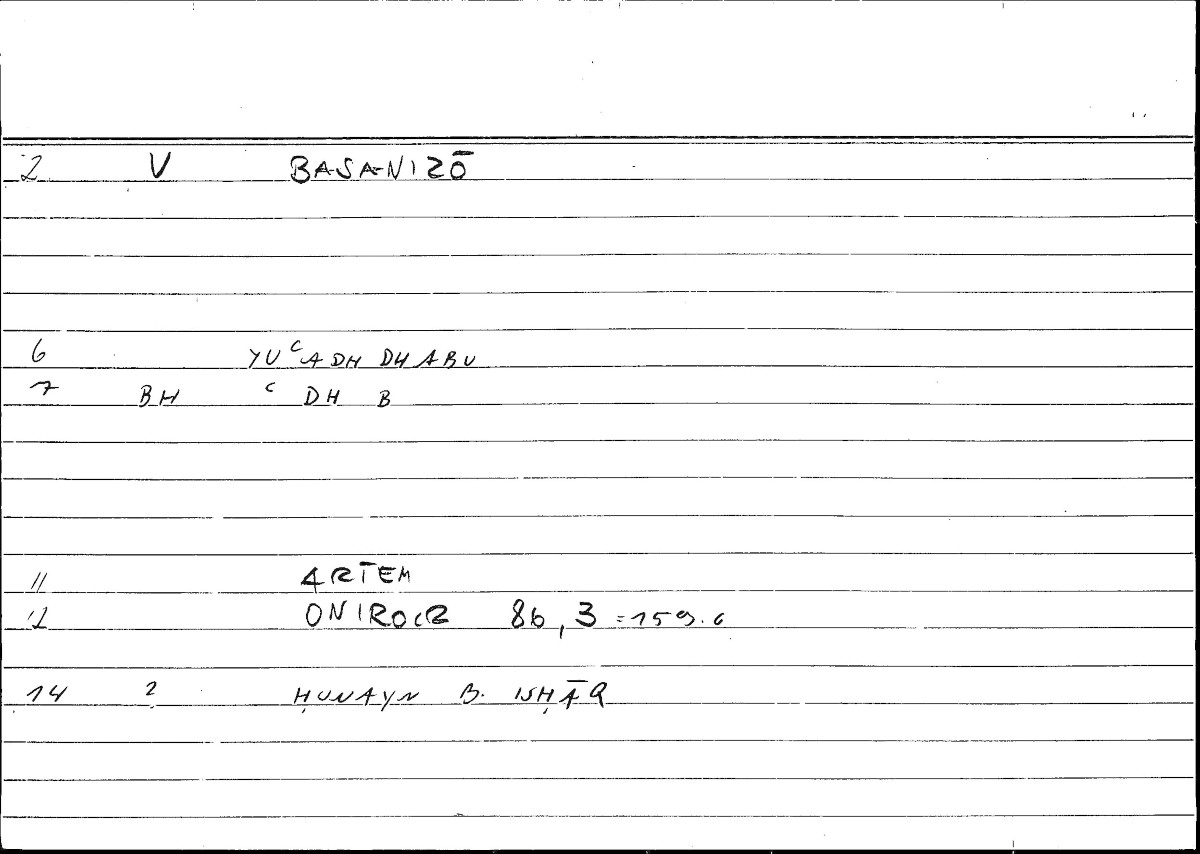 2 V BASANIZŌ
6 YUʿADHDHABU
7 BH ʿ DH B
11 ARTEM
12 ONIROCR 86,3 =159.6
14 2 ḤUNAYN B. ISḤĀQ